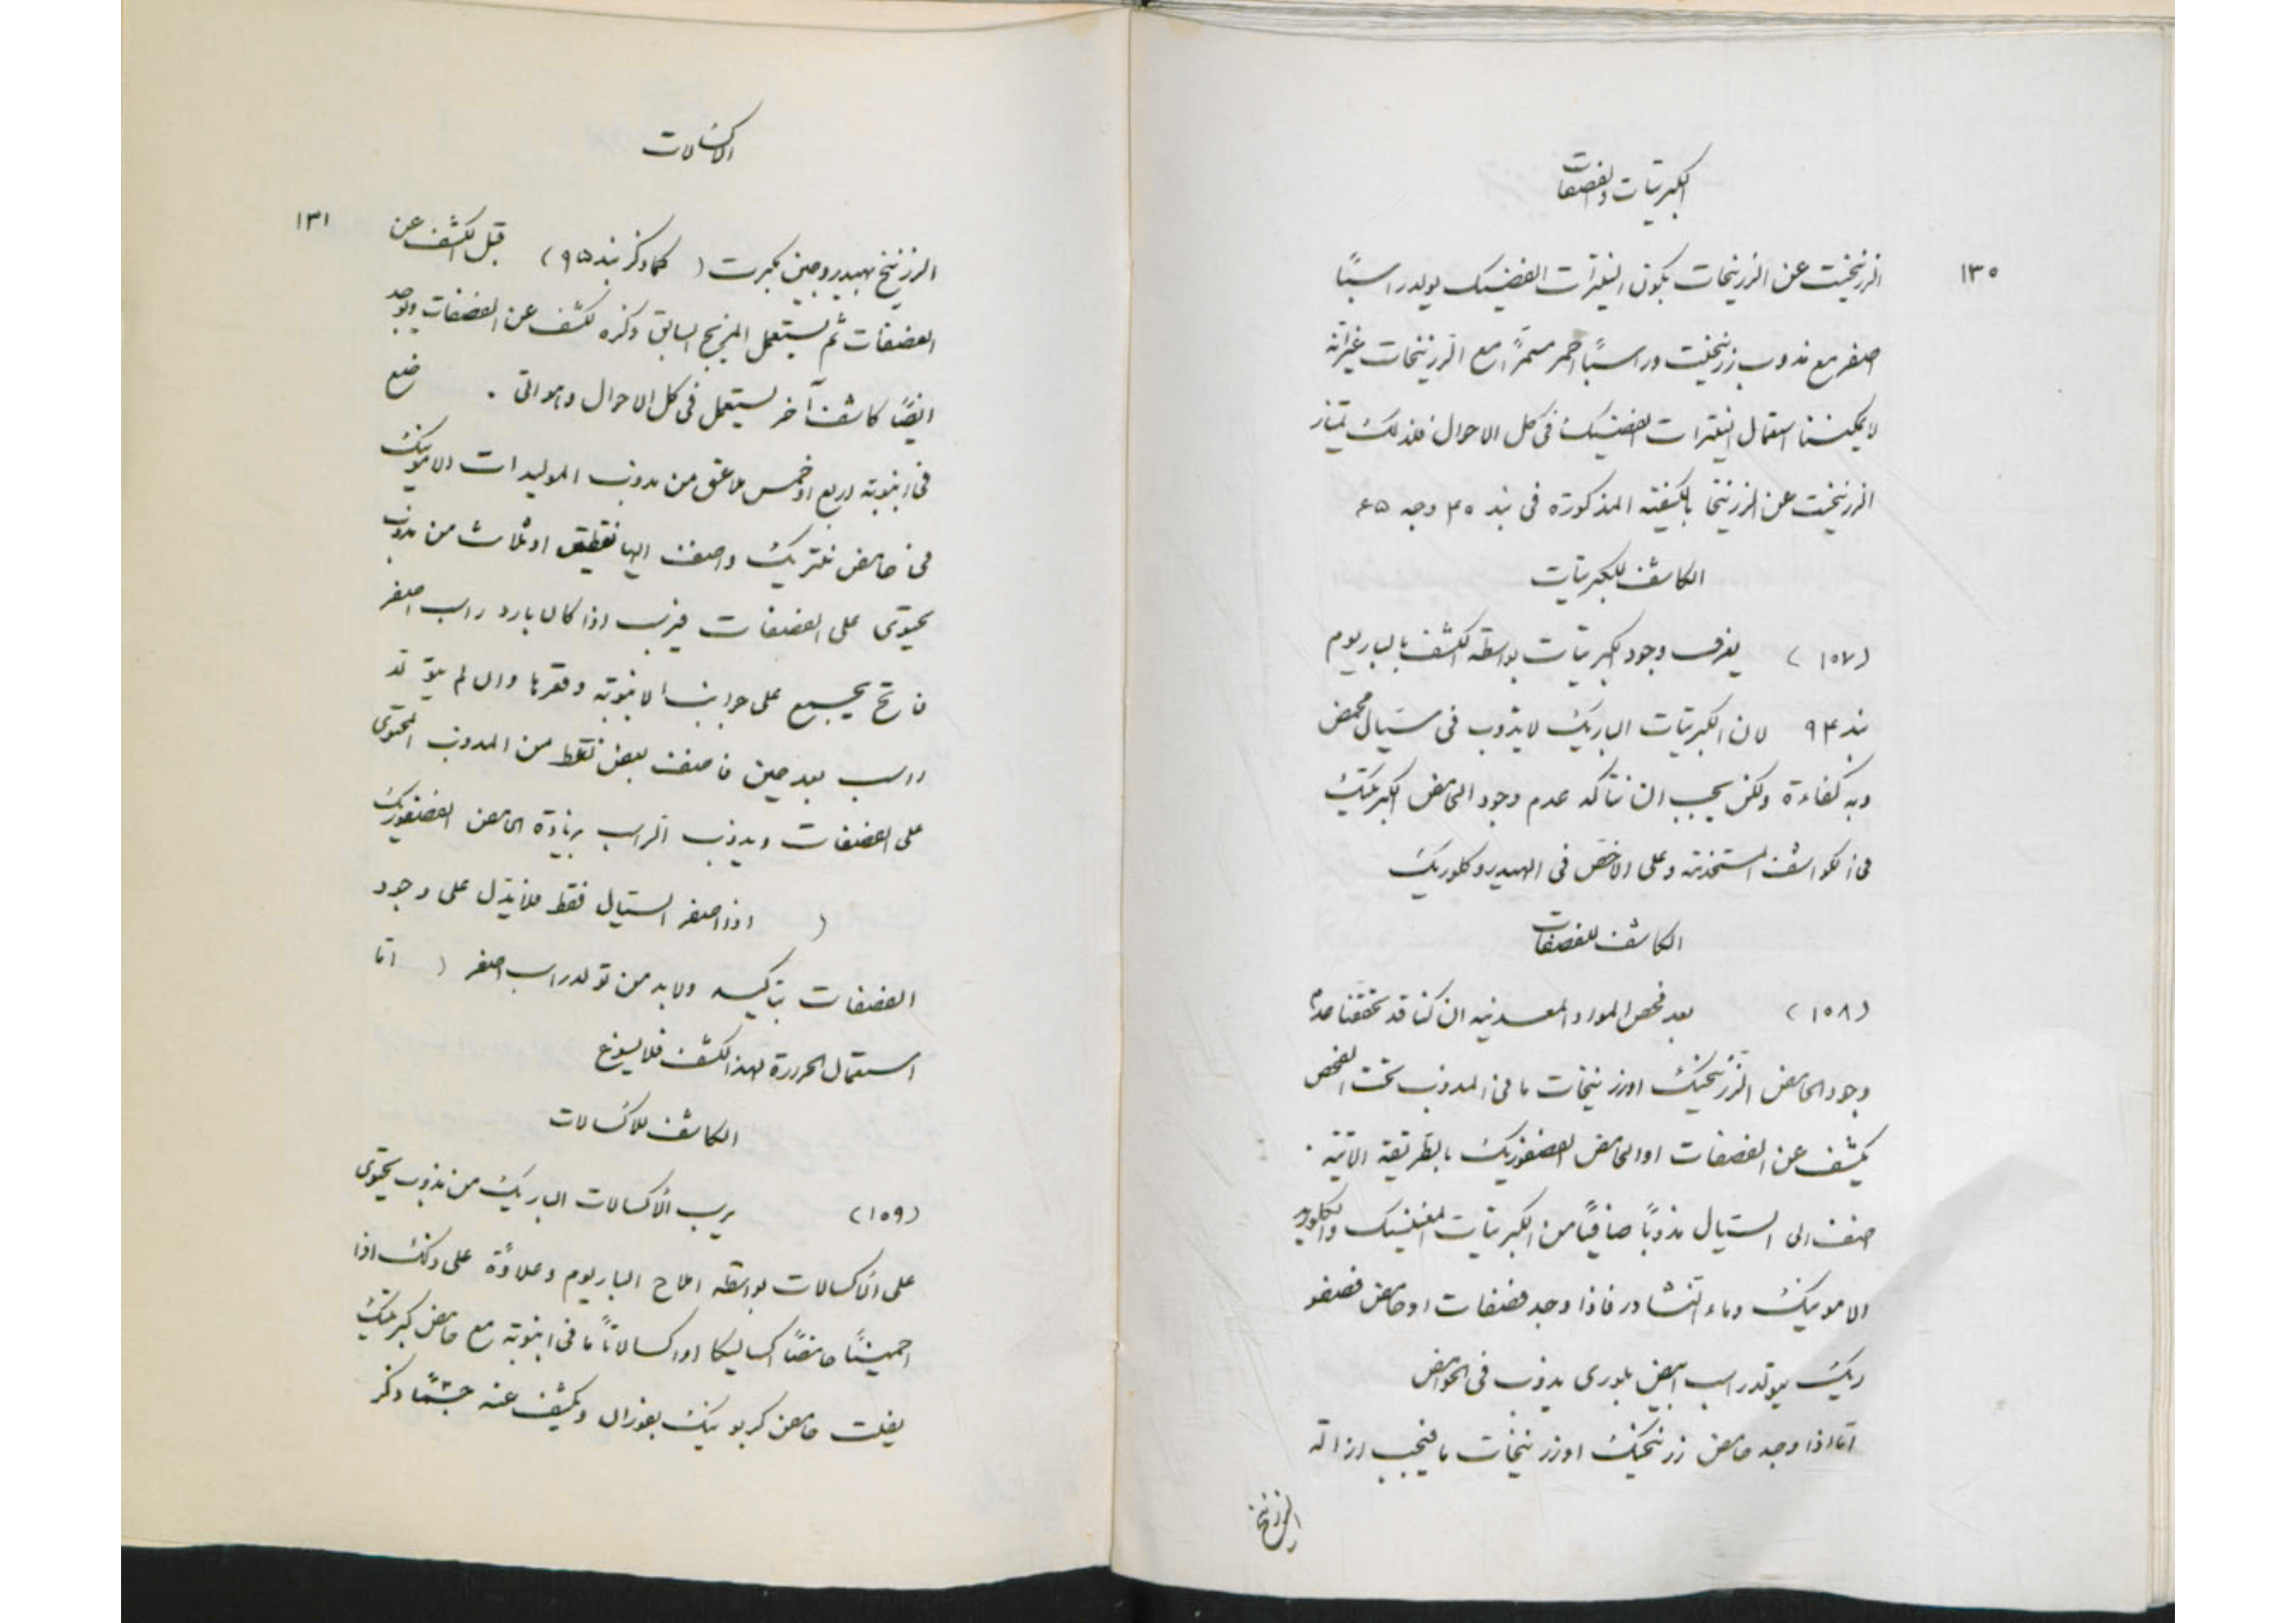 الكبريتات والفصفات
١٣٠
الزرنيخيت عن الزرنيخات بكون النيترات الفضيك يولد راسبًا
اصفر مع مذوب زرنيخيت وراسبًا احمر مسمرًا مع الزرنيخات غير انه
لا يمكننا استعمال النيترات الفضيك فى كل الاحوال فلذلك تمتاز
الزرنيخيت عن الزرنيخا بالكيفيته المذكورة فى بند ٣٠ وجه ٤٥
الكاشف للكبريتات
(١٥٧) يعرف وجود الكبريتات بواسطه الكشف بالباريوم
بند ٩٣ لان الكبريتات الباريك لا يذوب فى سيال محمض
وبه كفاءة ولكن يجب ان نتأكد عدم وجود الحامض الكبريتيك
فى الكواشف المستخدمة وعلى الاخص فى الهيدروكلوريك
الكاشف للفصفات
(١٥٨) بعد فحص المواد المعدنيه ان كنا قد تحققنا عدم
وجود الحامض الزرنيخيك اوزرنيخات ما فى المذوب تحت الفحص
يكشف عن الفصفات او الحامض الفصفوريك بالطريقة الاتية .
اضف الى السيال مذوبًا صافيًا من الكبريتات المغنيسيك والكلوريد
الامونيك وماء النشادر فاذا وجد فصفات او حامض فصفو
ريك يتولد راسب ابيض بلورى يذوب فى الحوامض
اما اذا وجد حامض زرنيخيك اوزرنيخات ما فيجب ازالة
الزرنيخ
الاكسالات
١٣١
الزرنيخ بهيدروجين مكبرت (كما ذكر بند ٩٥) قبل الكشف عن
الفصفات ثم يستعمل المزيج السابق ذكره لكشف عن الفصفات ويوجد
ايضًا كاشف آخر يستعمل فى كل الاحوال وهو الاتى . ضع
فى انبوبة اربع او خمس ملاعق من مذوب الموليدات الامونيك
فى حامض نيتريك واضف اليها نقطتين او ثلاث من مذوب
يحتوى على الفصفات فيرسب اذا كان بارد راسب اصفر
فاتح يجتمع على جوانب الانبوبة وقعرها وان لم يتولد
راسب بعد حين فاضف بعض نقط من المذوب المحتوى
على الفصفات ويذوب الراسب بزيادة الحامض الفصفوريك
( اذا اصفر السيال فقط فلا يدل على وجود
الفصفات بتاكيد ولابد من تولد راسب اصفر ) اما
استعمال الحرارة لهذا الكشف فلا يسوغ
الكاشف للاكسالات
(١٥٩) يرسب الاكسالات الباريك من مذوب يحتوى
على الاكسالات بواسطه املاح الباريوم وعلاوة على ذلك اذا
احمينا حامضًا اكساليكا او اكسالاتًا ما فى انبوبة مع حامض كبريتيك
يفلت حامض كربونيك بفوران ويكشف عنه حسبما ذكر